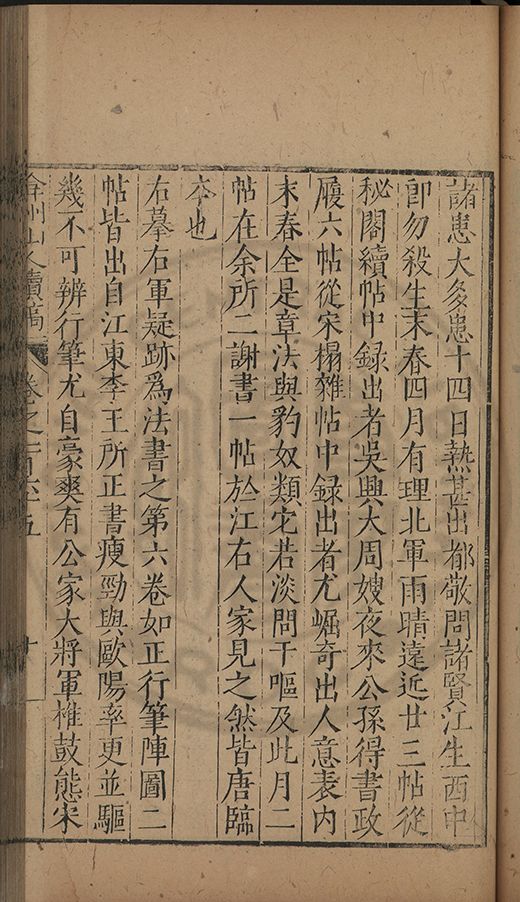 諸患大多患十四日熱甚出都敬問諸賢江生西中
卽勿殺生末春四月有理北軍雨晴遠近廿三帖從
秘閣續帖中録出者吳興大周嫂夜來公孫得書政
履六帖從宋榻雜帖中録出者尤崛奇出人意表内
末春全是章法與豹奴類定若淡問干嘔及此月二
帖在余所二謝書一帖於江右人家見之然皆唐臨
本也
右摹右軍疑跡爲法書之第六卷如正行筆陣圖二
帖皆出自江東李王所正書瘦勁與歐陽率更並驅
幾不可辨行筆尤自豪爽有公家大將軍椎鼓態宋
弇州山人續稿 卷之一百六十五